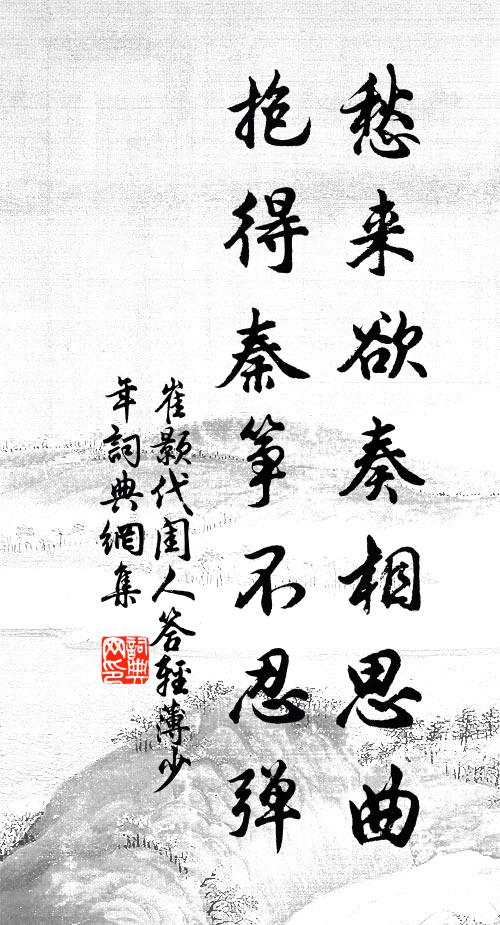 愁来欲奏相思曲
抱得秦筝不忍弹
崔颢代闺人答轻薄少
年词典網集
詞典
网印